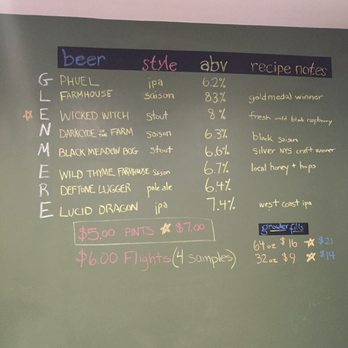 beer style abv recipe notes
G PHUEL ipa 6.2%
L FARMHOUSE saison 8.3% gold medal winner
E ☆ WICKED WITCH stout 8% fresh wild black raspberry
N DARKCYDE OF THE FARM saison 6.3% black saison
M BLACK MEADOW BOG stout 6.6% silver NYS craft winner
E WILD THYME FARMHOUSE saison 6.7% local honey + hops
R DEFTONE LUGGER pale ale 6.4%
E LUCID DRAGON ipa 7.4% west coast ipa
$5.00 PINTS ☆ $7.00
$6.00 Flights (4 samples)
growler fills
64 oz $16 ☆ $21
32 oz $9 ☆ $14